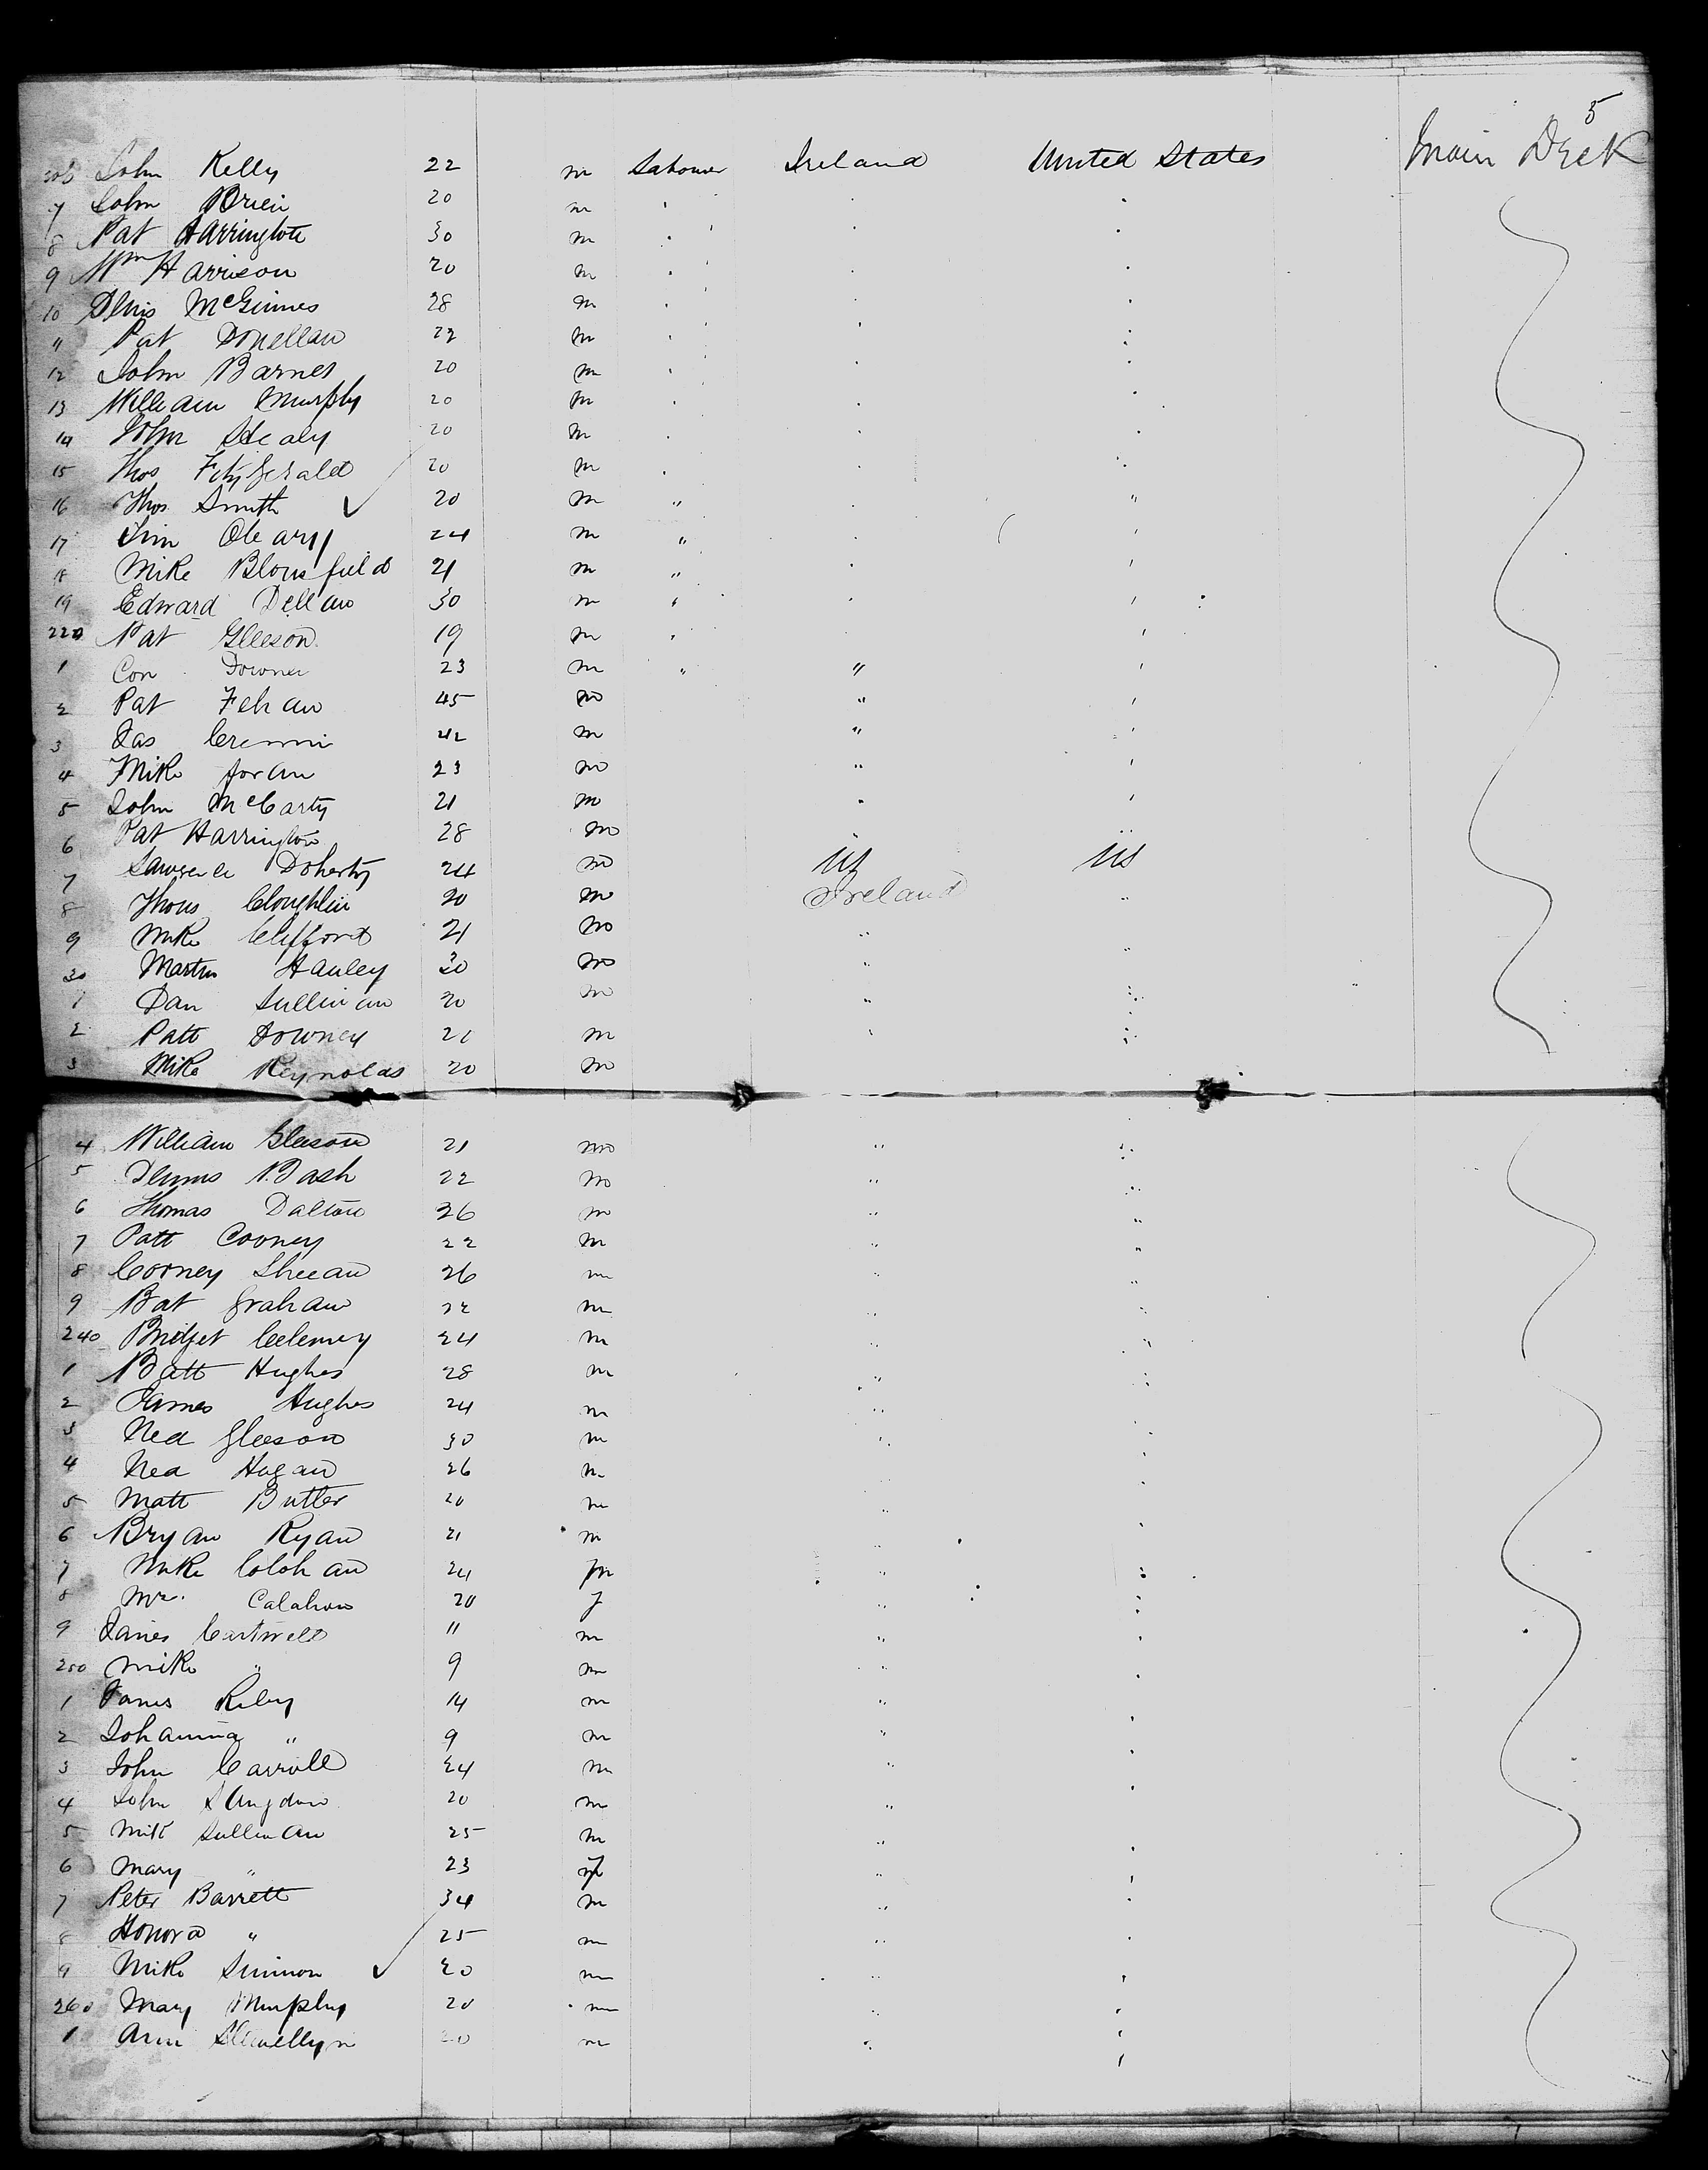 5
206 John Kelly 22 m Labourer Ireland United States Main Deck
7 John Brien 20 m
8 Pat Harrington 30 m
9 Wm Harrison 20 m
10 Denis McGinnes 28 m
11 Pat Donellan 22 m
12 John Barnes 20 m
13 William Murphy 20 m
14 John Healy 20 m
15 Thos Fitzgerald 20 m
16 Thos Smith ✓ 20 m " "
17 Tim Oleary 24 m "
18 Mike Blomfield 21 m "
19 Edward Dellan 30 m
220 Pat Gleeson 19 m
1 Con Downer 23 m " "
2 Pat Fehan 45 m "
3 Jas Cremmin 42 m "
4 Mike Foran 23 m "
5 John McCarty 21 m
6 Pat Harrington 28 m
7 Lawrence Doherty 24 m US US
8 Thos Cloughlin 20 m Ireland "
9 Mike Clifford 21 m " "
30 Martin Hanley 30 m "
1 Dan Sullivan 20 m "
2 Patt Downey 21 m
3 Mike Reynolds 20 m
4 William Gleeson 21 m "
5 Dennis Nash 22 m " "
6 Thomas Dalton 26 m " "
7 Patt Cooney 22 m " "
8 Corney Sheean 26 m " "
9 Bat Graham 22 m "
240 Bridget 24 m "
1 Batt Hughes 28 m "
2 James Hughes 24 m "
3 Ned Gleeson 30 m "
4 Ned Hogan 26 m
5 Matt Butler 20 m "
6 Bryan Ryan 21 m "
7 Mike Colohan 24 m "
8 Mrs. Calahan 20 f "
9 James Cartwell 11 m "
250 Mike " 9 m "
1 James Riley 14 m "
2 Johanna " 9 m "
3 John Carroll 24 m "
4 John 20 m "
5 Mik Sullivan 25 m "
6 Mary " 23 f "
7 Peter Barrett 34 m "
8 Honora " 25 m "
9 Mike Sinnion ✓ 20 m "
260 Mary Murphy 20 m "
1 Ann Llewellyn 20 m "